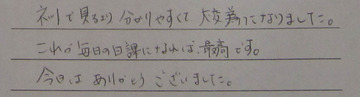 ネットで見るより分かりやすくて大変為になりました。
これが毎日の日課になれば最高です。
今日はありがとうございました。